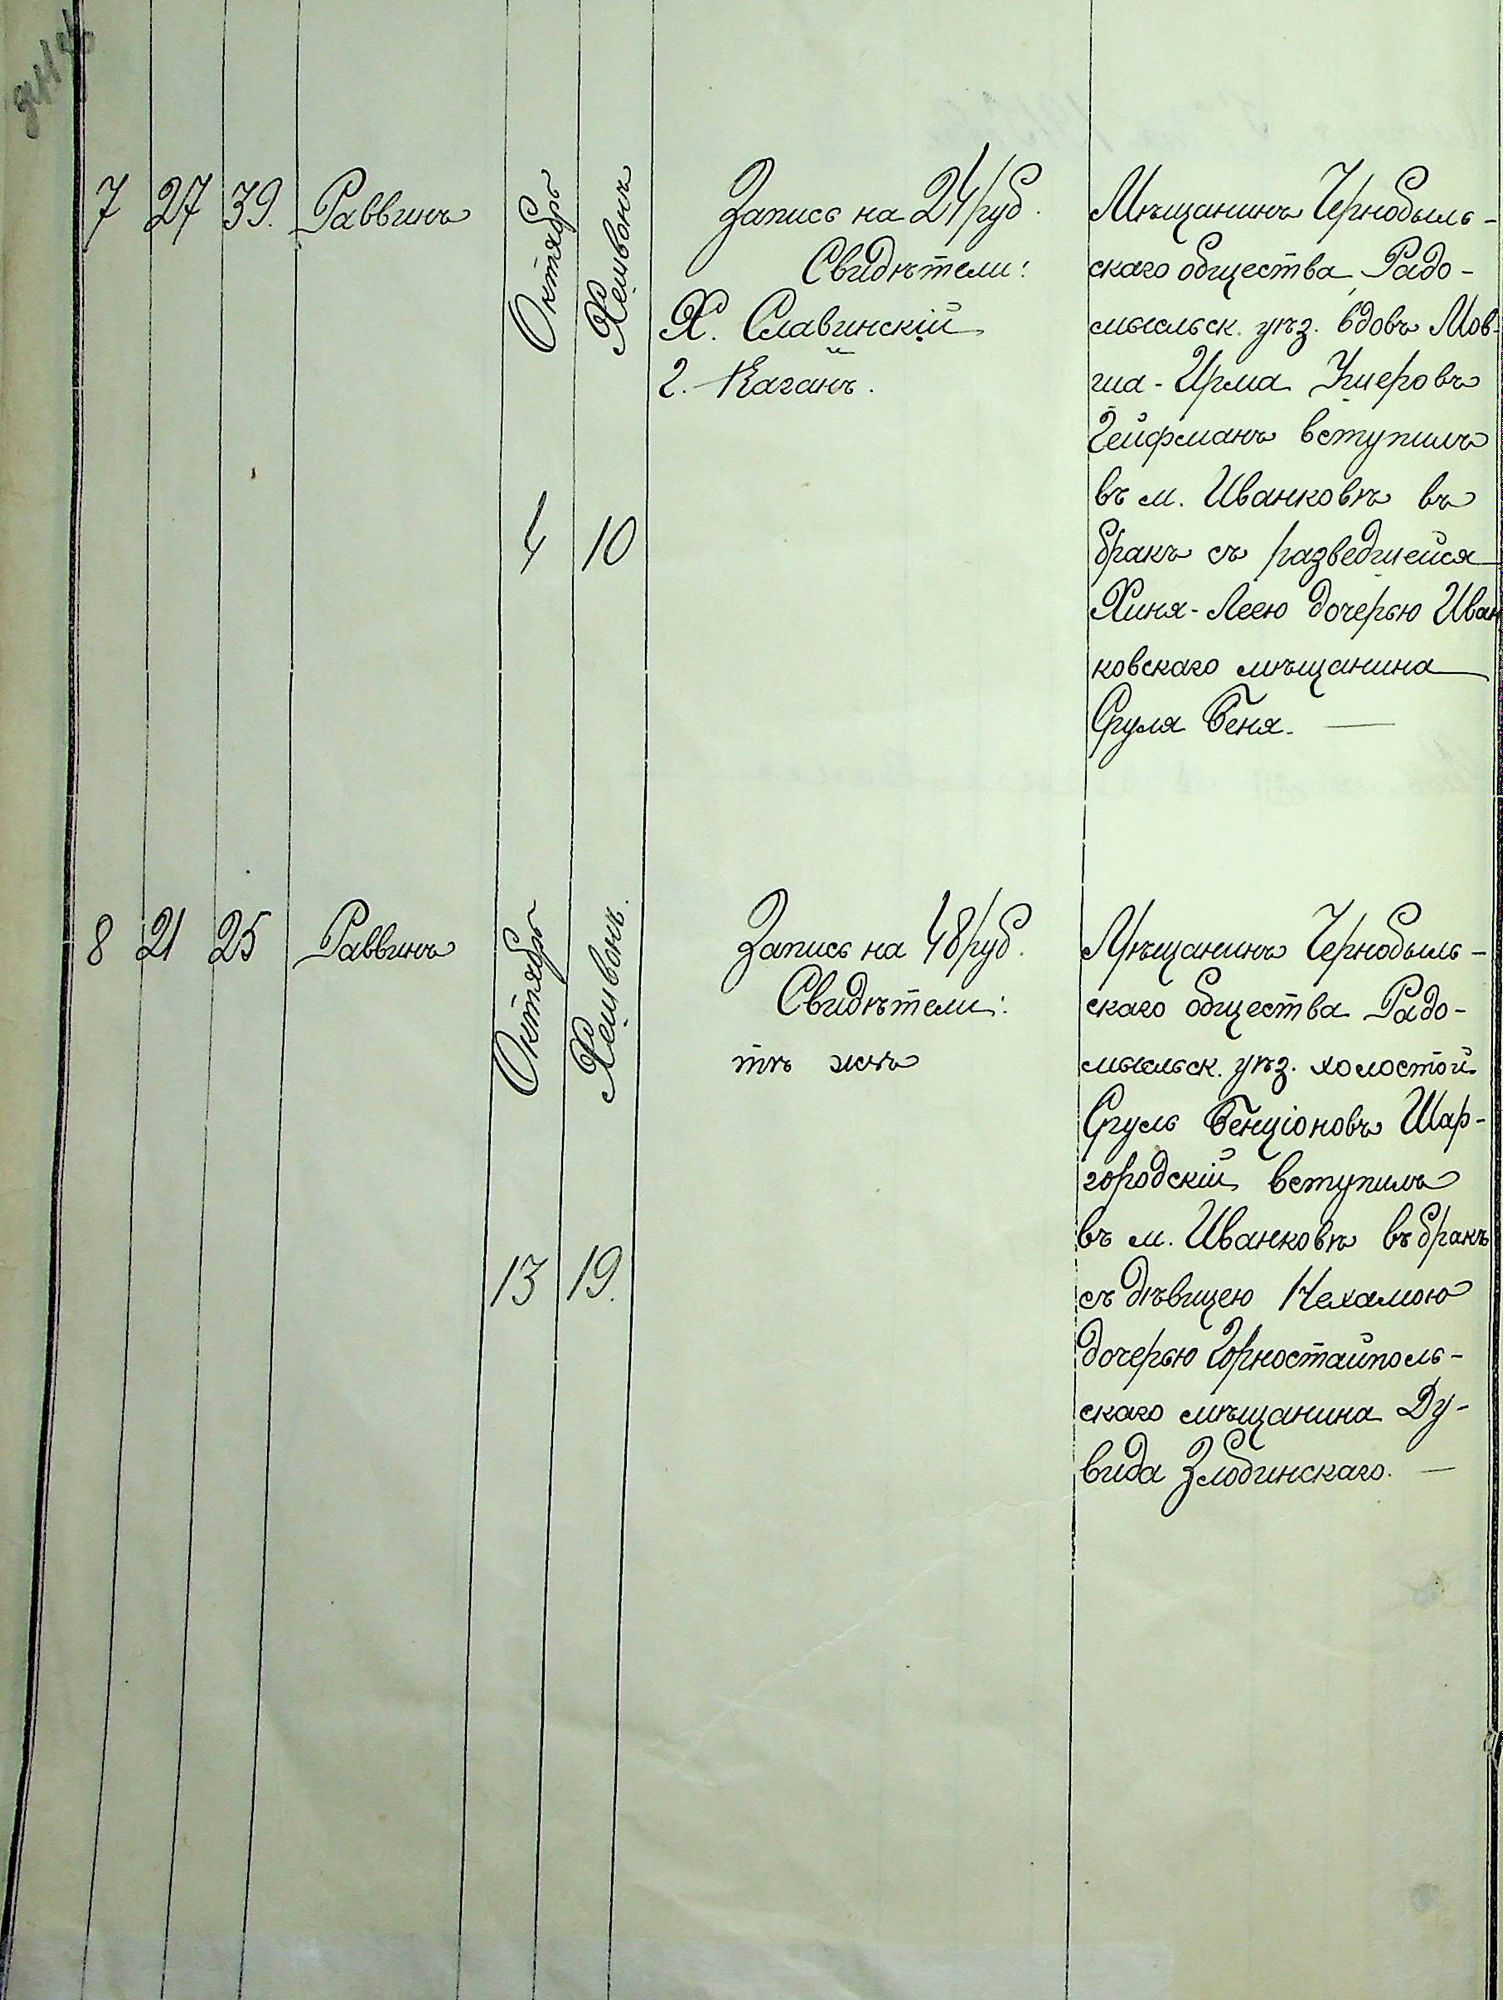 7 27 39. Раввинъ
Октябрь
4
Хешвонъ
10
Запись на 24 руб.
Свидѣтели:
Х. Славинскій
2. Каганъ.
Мѣщанинъ Чернобыль-
скаго общества Радо-
мысльск. уѣз. вдовъ Мов-
ша-Ирма Ушеровъ
Гейфманъ вступилъ
въ м. Иванковѣ въ
бракъ съ разведшейся
Хиня-Леею дочерью Иван
ковскаго мѣщанина
Сруля Беня. —
8 21 25 Раввинъ
Октябрь
13
Хешвонъ.
19.
Запись на 48 руб.
Свидѣтели:
тѣ же
Мѣщанинъ Чернобыль-
скаго общества Радо-
мысльск. уѣз. холостой
Сруль Бенціоновъ Шар-
городскій вступилъ
въ м. Иванковѣ въ бракъ
съ дѣвицею Нехамою
дочерью Горностайполь-
скаго мѣщанина Ду-
вида Злобинскаго. —